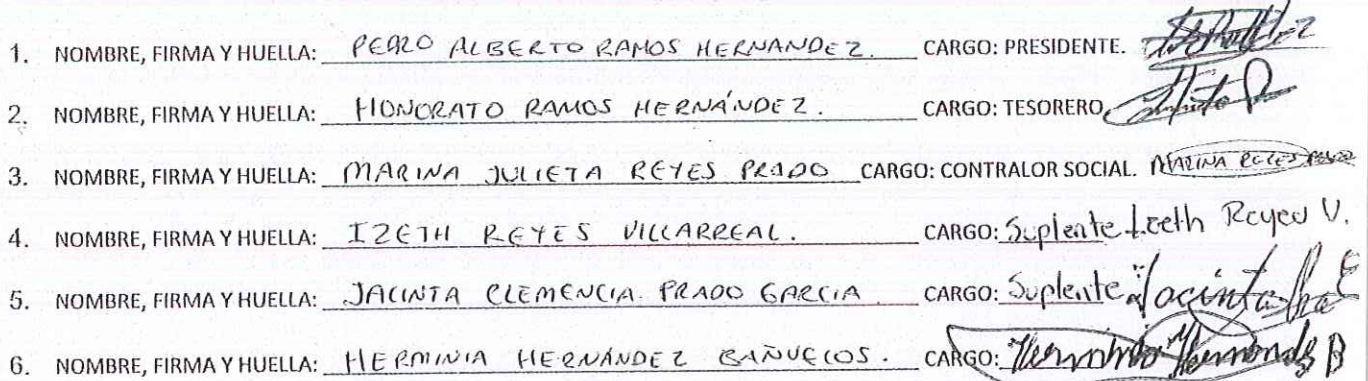 1. NOMBRE, FIRMA Y HUELLA: PEDRO ALBERTO RAMOS HERNANDEZ. CARGO: PRESIDENTE.
2. NOMBRE, FIRMA Y HUELLA: HONORATO RAMOS HERNÁNDEZ. CARGO: TESORERO
3. NOMBRE, FIRMA Y HUELLA: MARINA JULIETA REYES PRADO CARGO: CONTRALOR SOCIAL. MARINA REYES PRADO
4. NOMBRE, FIRMA Y HUELLA: IZETH REYES VILLARREAL. CARGO: Suplente Izeth Reyes V.
5. NOMBRE, FIRMA Y HUELLA: JACINTA CLEMENCIA PRADO GARCIA CARGO: Suplente Jacinta
6. NOMBRE, FIRMA Y HUELLA: HERMINIA HERNÁNDEZ BAÑUELOS. CARGO: Herminia Hernandez B